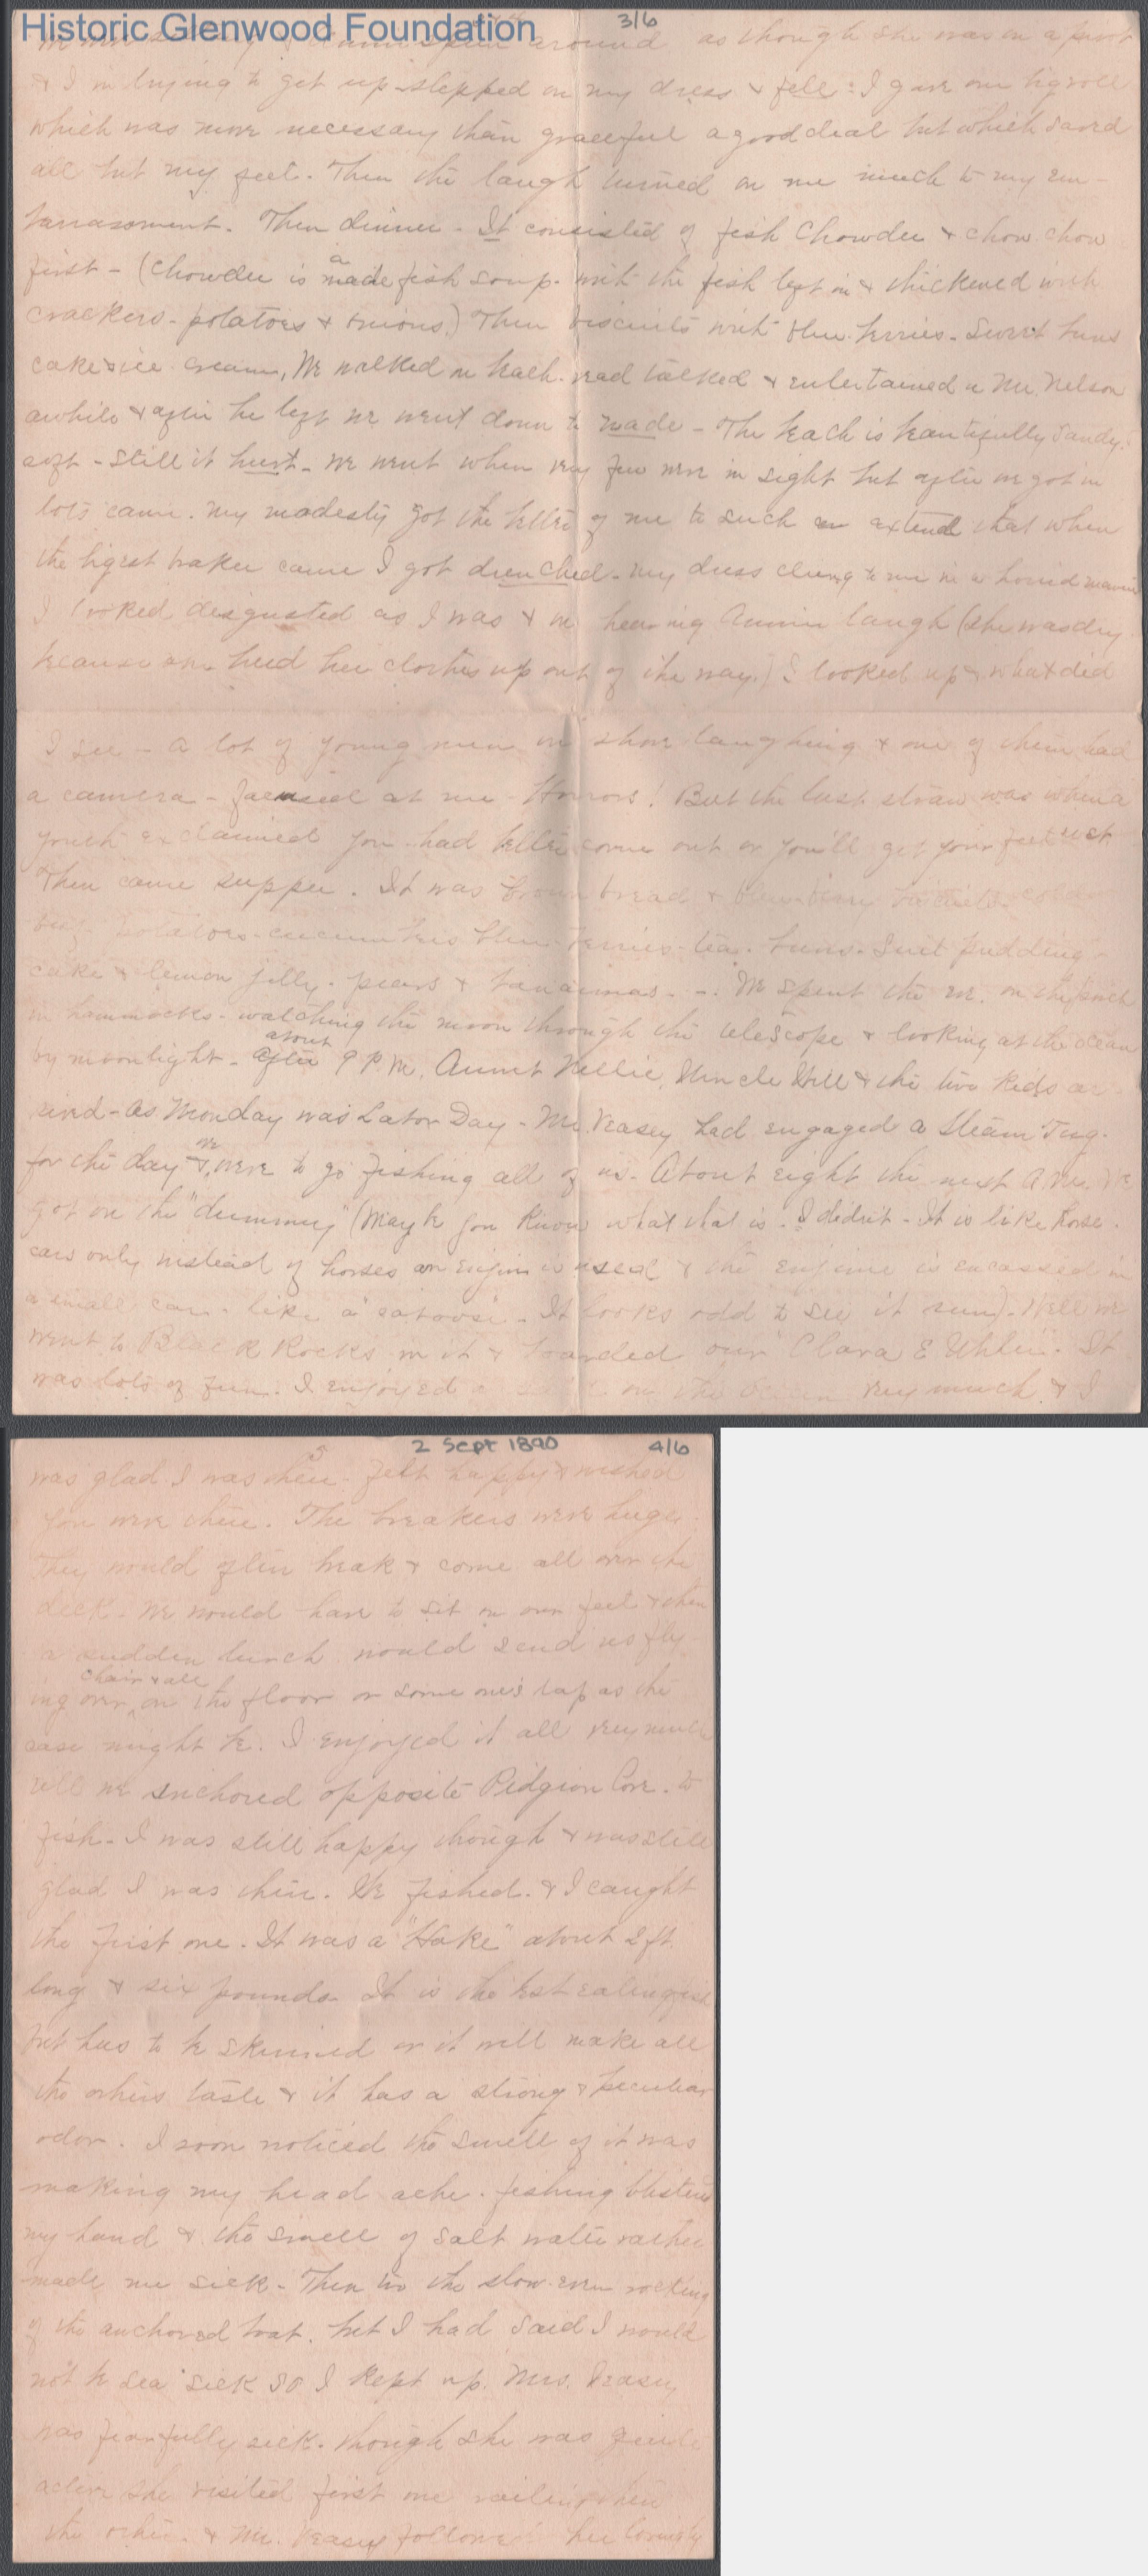 Historic Glenwood Foundation
3/6
around as though she was on a pivot
& I in trying to get up stepped on my dress & fell: I gave one big roll
which was more necessary than graceful a good deal but which saved
all but my feet. Then the laugh turned on me much to my em-
barrassment. Then dinner - It consisted of fish Chowder & chow chow
first - (Chowder is a made fish soup. with the fish left in & thickened with
crackers - potatoes & onions.) Then biscuits with blue berries. Sweet buns
cake & ice cream, We walked on beach. read talked & entertained a Mr. Nelson
awhile & after he left we went down to wade - The beach is beautifully sandy.
soft - still it hurt - We went when very few were in sight but after we got in
lots came. My modesty got the better of me to such an extend that when
the bigest braker came I got drenched - my dress clung to me in a horrid manner
I looked desgusted as I was & on hearing Annie laugh (she was dry
because she held her clothes up out of the way.) I looked up & what did
I see - a lot of young men on shore laughing & one of them had
a camera - focused at me - Horrors! But the last straw was when a
youth exclaimed you had better come out or you'll get your feet wet
Then came supper. It was brown bread & blue berry biscuits
potatoes - cucumbers blue berries - tea. buns. Suet pudding -
cake & lemon jelly. pears & bananas. - . We spent the eve. on the porch
in hammocks - watching the moon through the telescope & looking at the ocean
by moonlight - after about 9 P.M. Aunt Nellie, Uncle Will & the two kids ar-
rived - As Monday was Labor Day - Mr. Veasey had engaged a Steam Tug.
for the day & we were to go fishing all of us. About eight the next A.M. We
got on the "dummy" (Maybe you know what that is. I didn't - It is like horse.
cars only instead of horses an engine is used & the engine is encassed in
a small car. like a "caboose" - It looks odd to see it run). Well we
went to Black Rocks in it & boarded our "Clara E Uhler". It
was lots of fun. I enjoyed on the Ocean very much & I
2 Sept 1890 4/6
was glad I was there. felt happy & wished
you were there. The breakers were huge.
They would often break & come all over the
deck. We would have to sit on our feet & then
a sudden lurch would send us fly-
ing over chair & all on the floor or some one's lap as the
case might be. I enjoyed it all very much
till we anchored opposite Pidgion Cove. to
fish - I was still happy though & was still
glad I was there. We fished. & I caught
the first one. It was a "Hake" about 2 ft.
long & six pounds. It is the best eating fish
but has to be skinned or it will make all
the others taste & it has a strong & peculiar
odor. I soon noticed the smell of it was
making my head ache. fishing blistered
my hand & the smell of salt water rather
made me sick - Then too the slow even rocking
of the anchored boat. but I had said I would
not be sea sick so I kept up. Mrs. Veasey
was fearfully sick. though she was quite
active she visited first one railing then
the other. & Mr. Veasey followed her lovingly